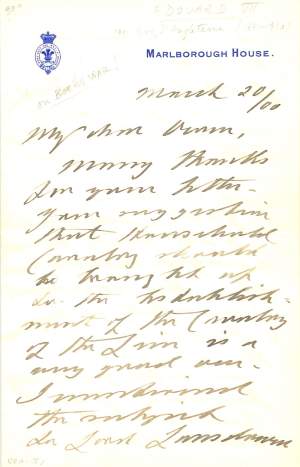 EDOUARD VII
MARLBOROUGH HOUSE.
on BOER WAR!
March 20/00
My dear
Many thanks
for your letter.
Your suggestion
that Household
Cavalry should
be brought up
to the Establish-
ment of the Cavalry
of the Line is a
very good one.
I mentioned
the subject
to Lord Lansdowne